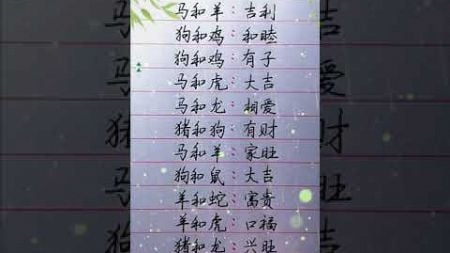 马和羊：吉利
狗和鸡：和睦
狗和鸡：有子
马和虎：大吉
马和龙：相爱
猪和狗：有财
马和羊：家旺
狗和鼠：大吉
羊和蛇：富贵
羊和虎：口福
猪和龙：兴旺